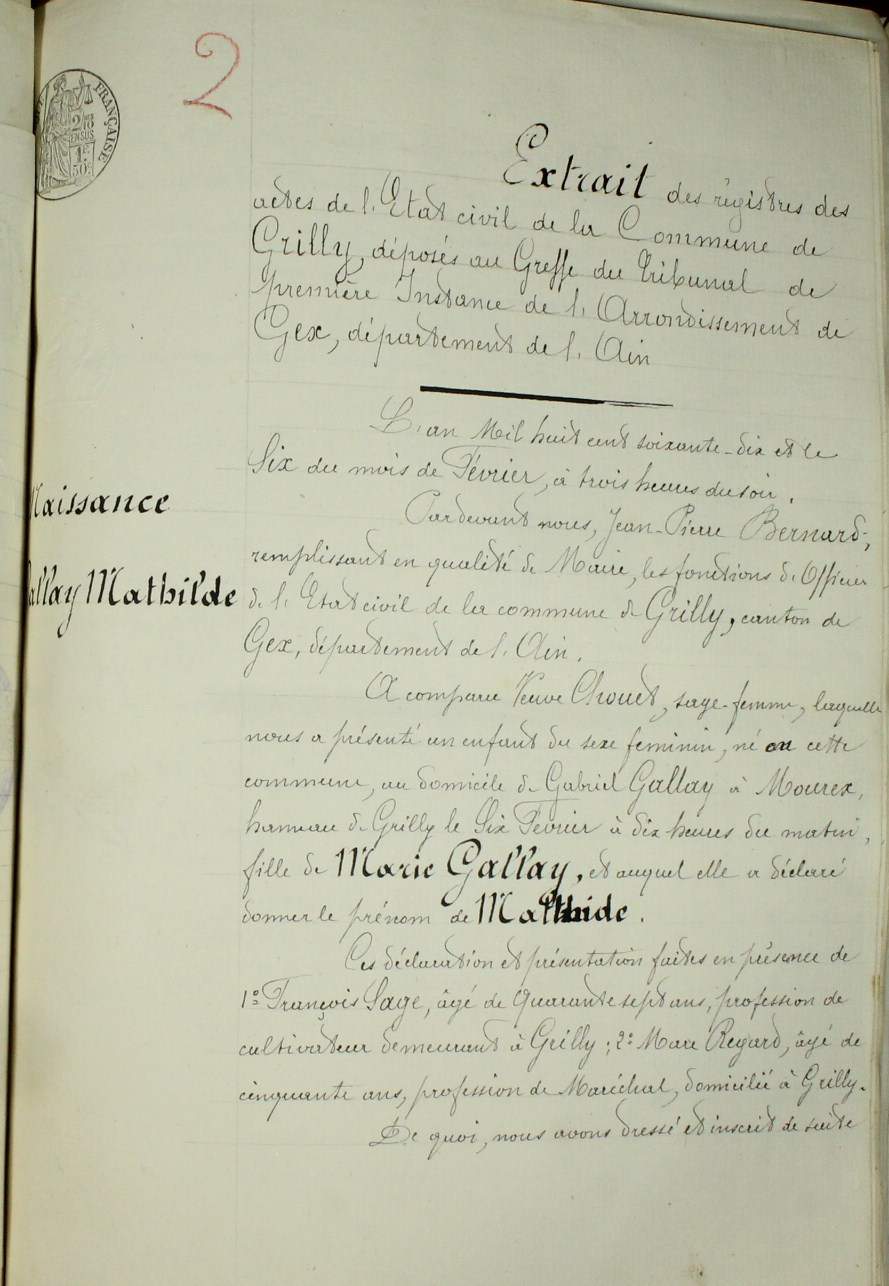 2
FRANÇAISE
2/10
EN SUS
1F
50c
Extrait des registres des
actes de l'Etat civil de la Commune de
Grilly, déposés au Greffe du Tribunal de
première Instance de l'Arrondissement de
Gex, département de l'Ain
L'an Mil huit cent soixante-dix et le
Six du mois de Février, à trois heures du soir.
Pardevant nous, Jean-Pierre Bernard,
remplissant en qualité de Maire, les fonctions d'Officier
de l'Etat civil de la commune de Grilly, canton de
Gex, département de l'Ain.
Naissance
Gallay Mathilde
A comparu Veuve Chouet, sage-femme, laquelle
nous a présenté un enfant du sexe feminin, né en cette
commune, au domicile de Gabriel Gallay à Mourex,
hameau de Grilly le Six Février à dix heures du matin,
fille de Marie Gallay, et auquel elle a déclaré
donner le prénom de Mathide.
Ces déclaration et présentation faites en présence de
1º François Sage, âgé de quarante sept ans, profession de
cultivateur demeurant à Grilly; 2º Marc Regard, âgé de
cinquante ans, profession de Maréchal, domicilié à Grilly.
De quoi, nous avons dressé et inscrit de suite